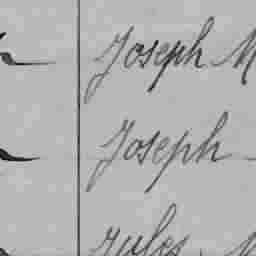 Joseph M
Joseph
Jules M